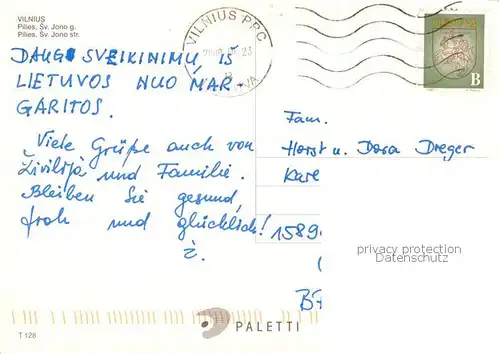 VILNIUS
Pilies, Šv. Jono g.
Pilies, Šv. Jono str.
VILNIUS PPC
DAUG SVEIKINIMŲ IŠ
LIETUVOS NUO MAR-
GARITOS.
Viele Grüße auch von
Živilijà und Familie.
Bleiben Sie gesund,
froh und glücklich!
ž.
B
Fam.
Horst u. Dora Dreger
Karl
1589
privacy protection
Datenschutz
PALETTI
T 128